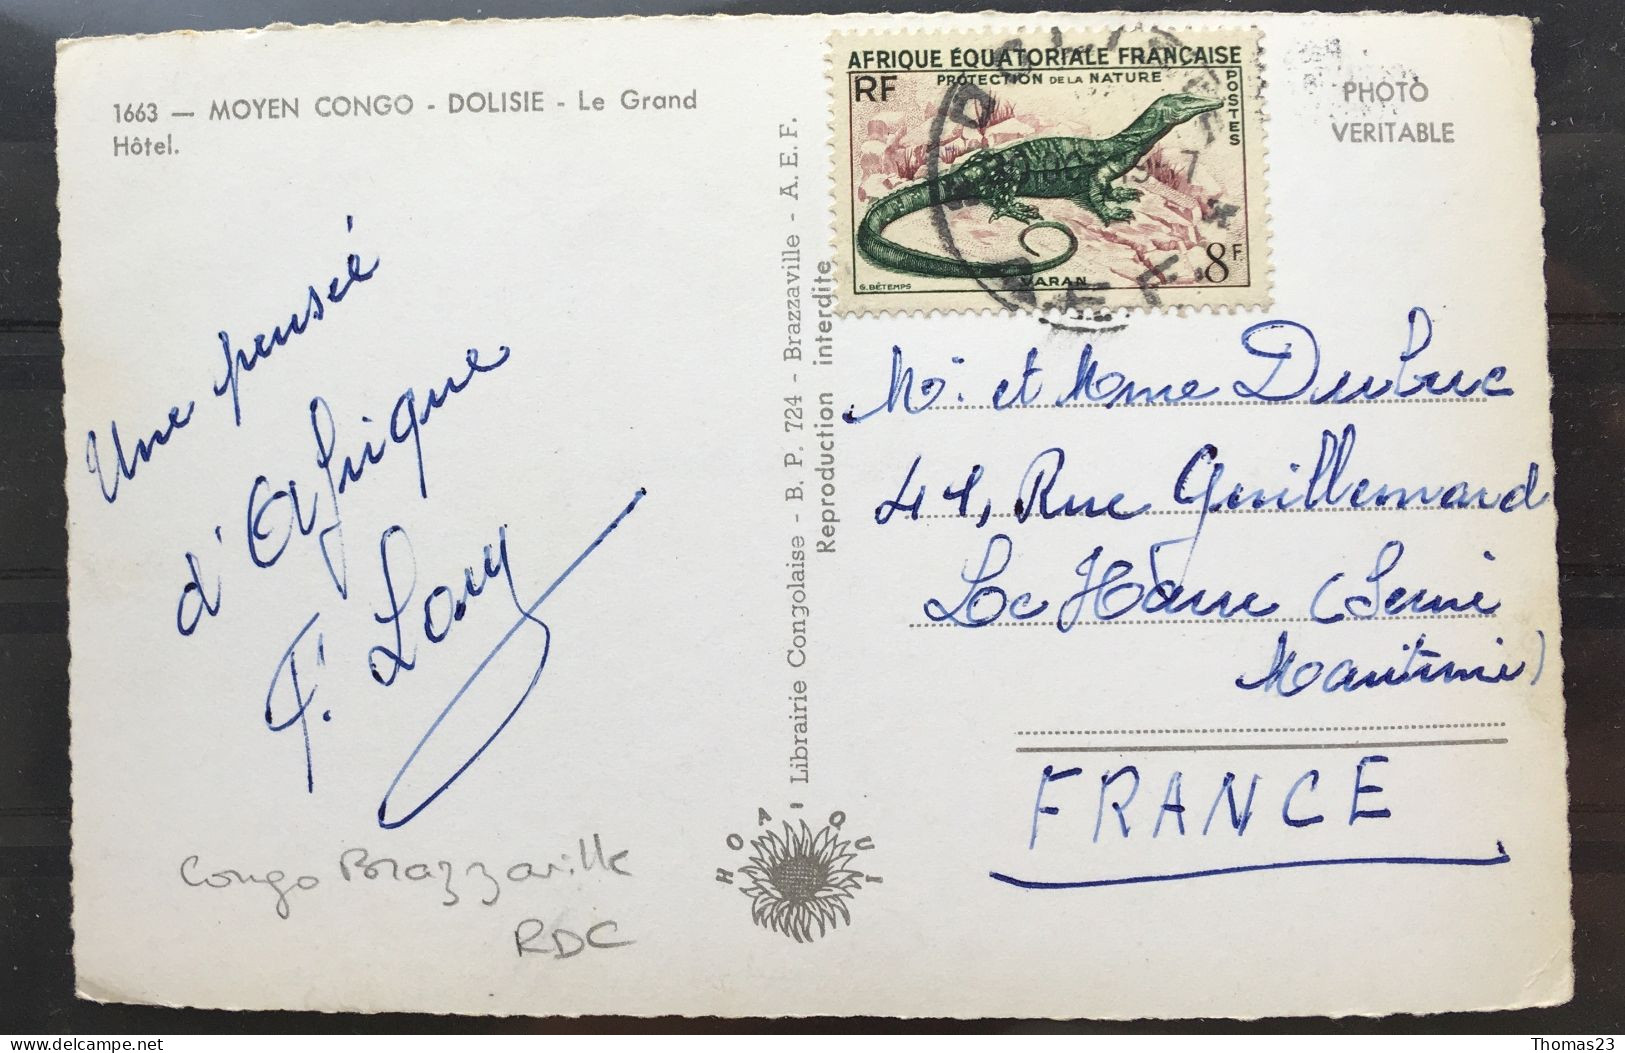 1663 — MOYEN CONGO - DOLISIE - Le Grand
Hôtel.
Une pensée
d'Afrique
AFRIQUE ÉQUATORIALE FRANÇAISE
PROTECTION DE LA NATURE
RF
POSTES
8F
VARAN
G. BÉTEMPS
PHOTO
VERITABLE
Librairie Congolaise - B. P. 724 - Brazzaville - A. E. F.
Reproduction interdite
HOA QUI
Mr et Mme Dubuc
41, Rue Guillemard
Le Hâvre (Seine
Maritime)
FRANCE
Congo Brazzaville
RDC
delcampe.net
Thomas23